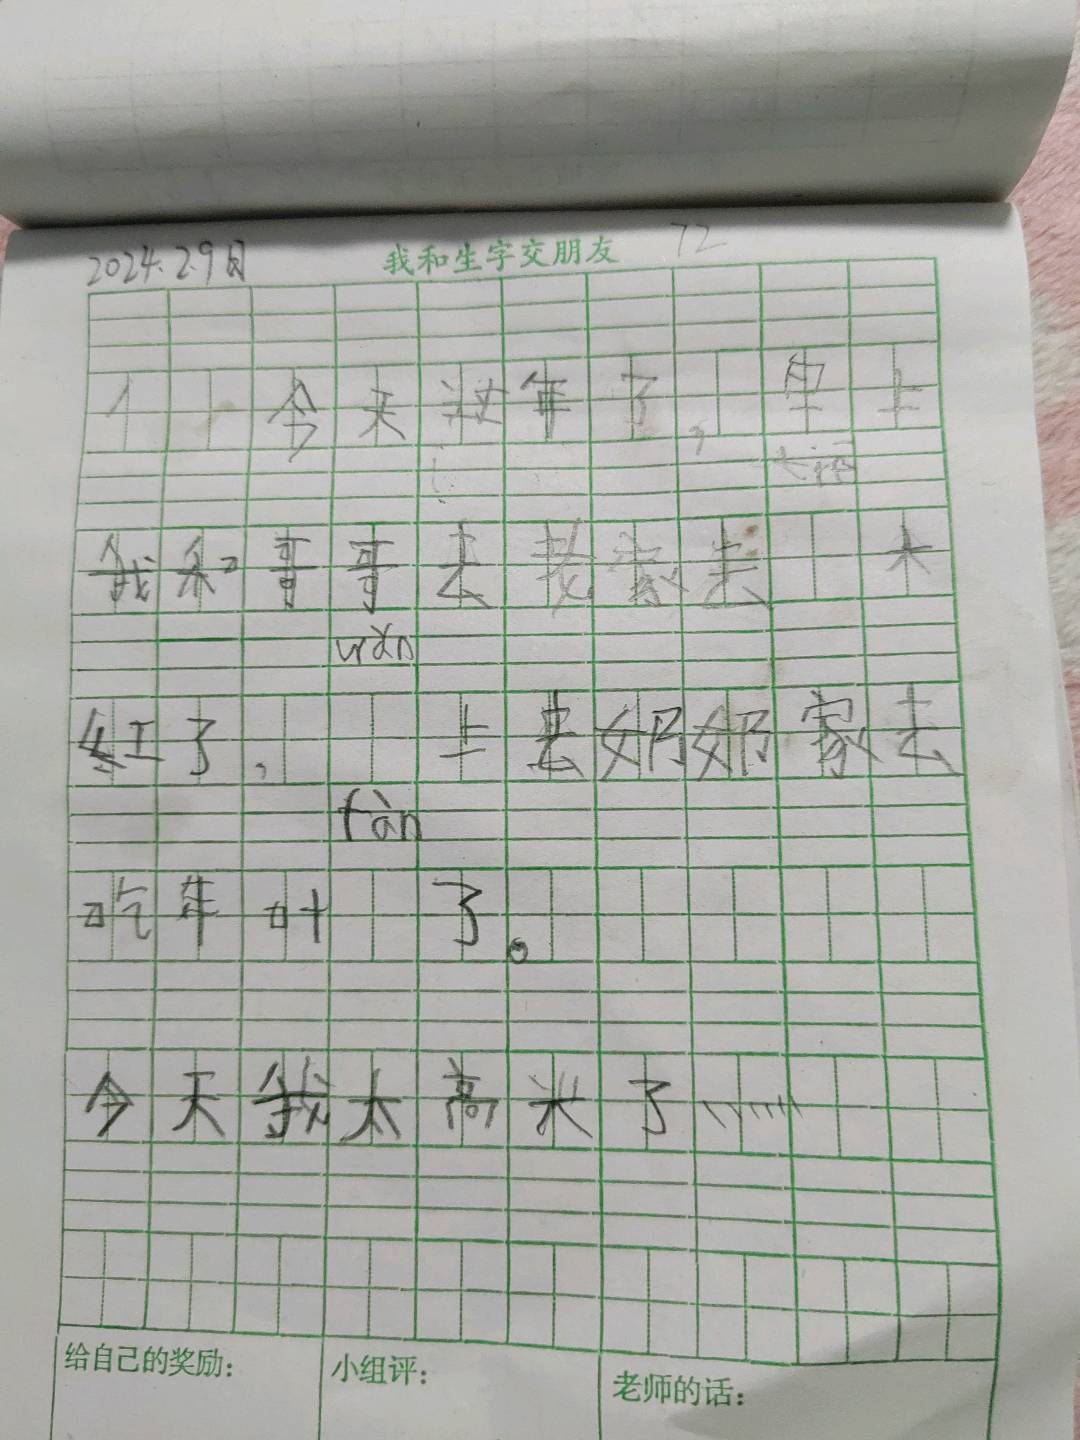 2024.2.9日 我和生字交朋友 72
今天过年了，早上
我和哥哥去老家去 大
wǎn
红了， 上去奶奶家去
fàn
吃年叶 了。
今天我太高兴了
给自己的奖励： 小组评： 老师的话：